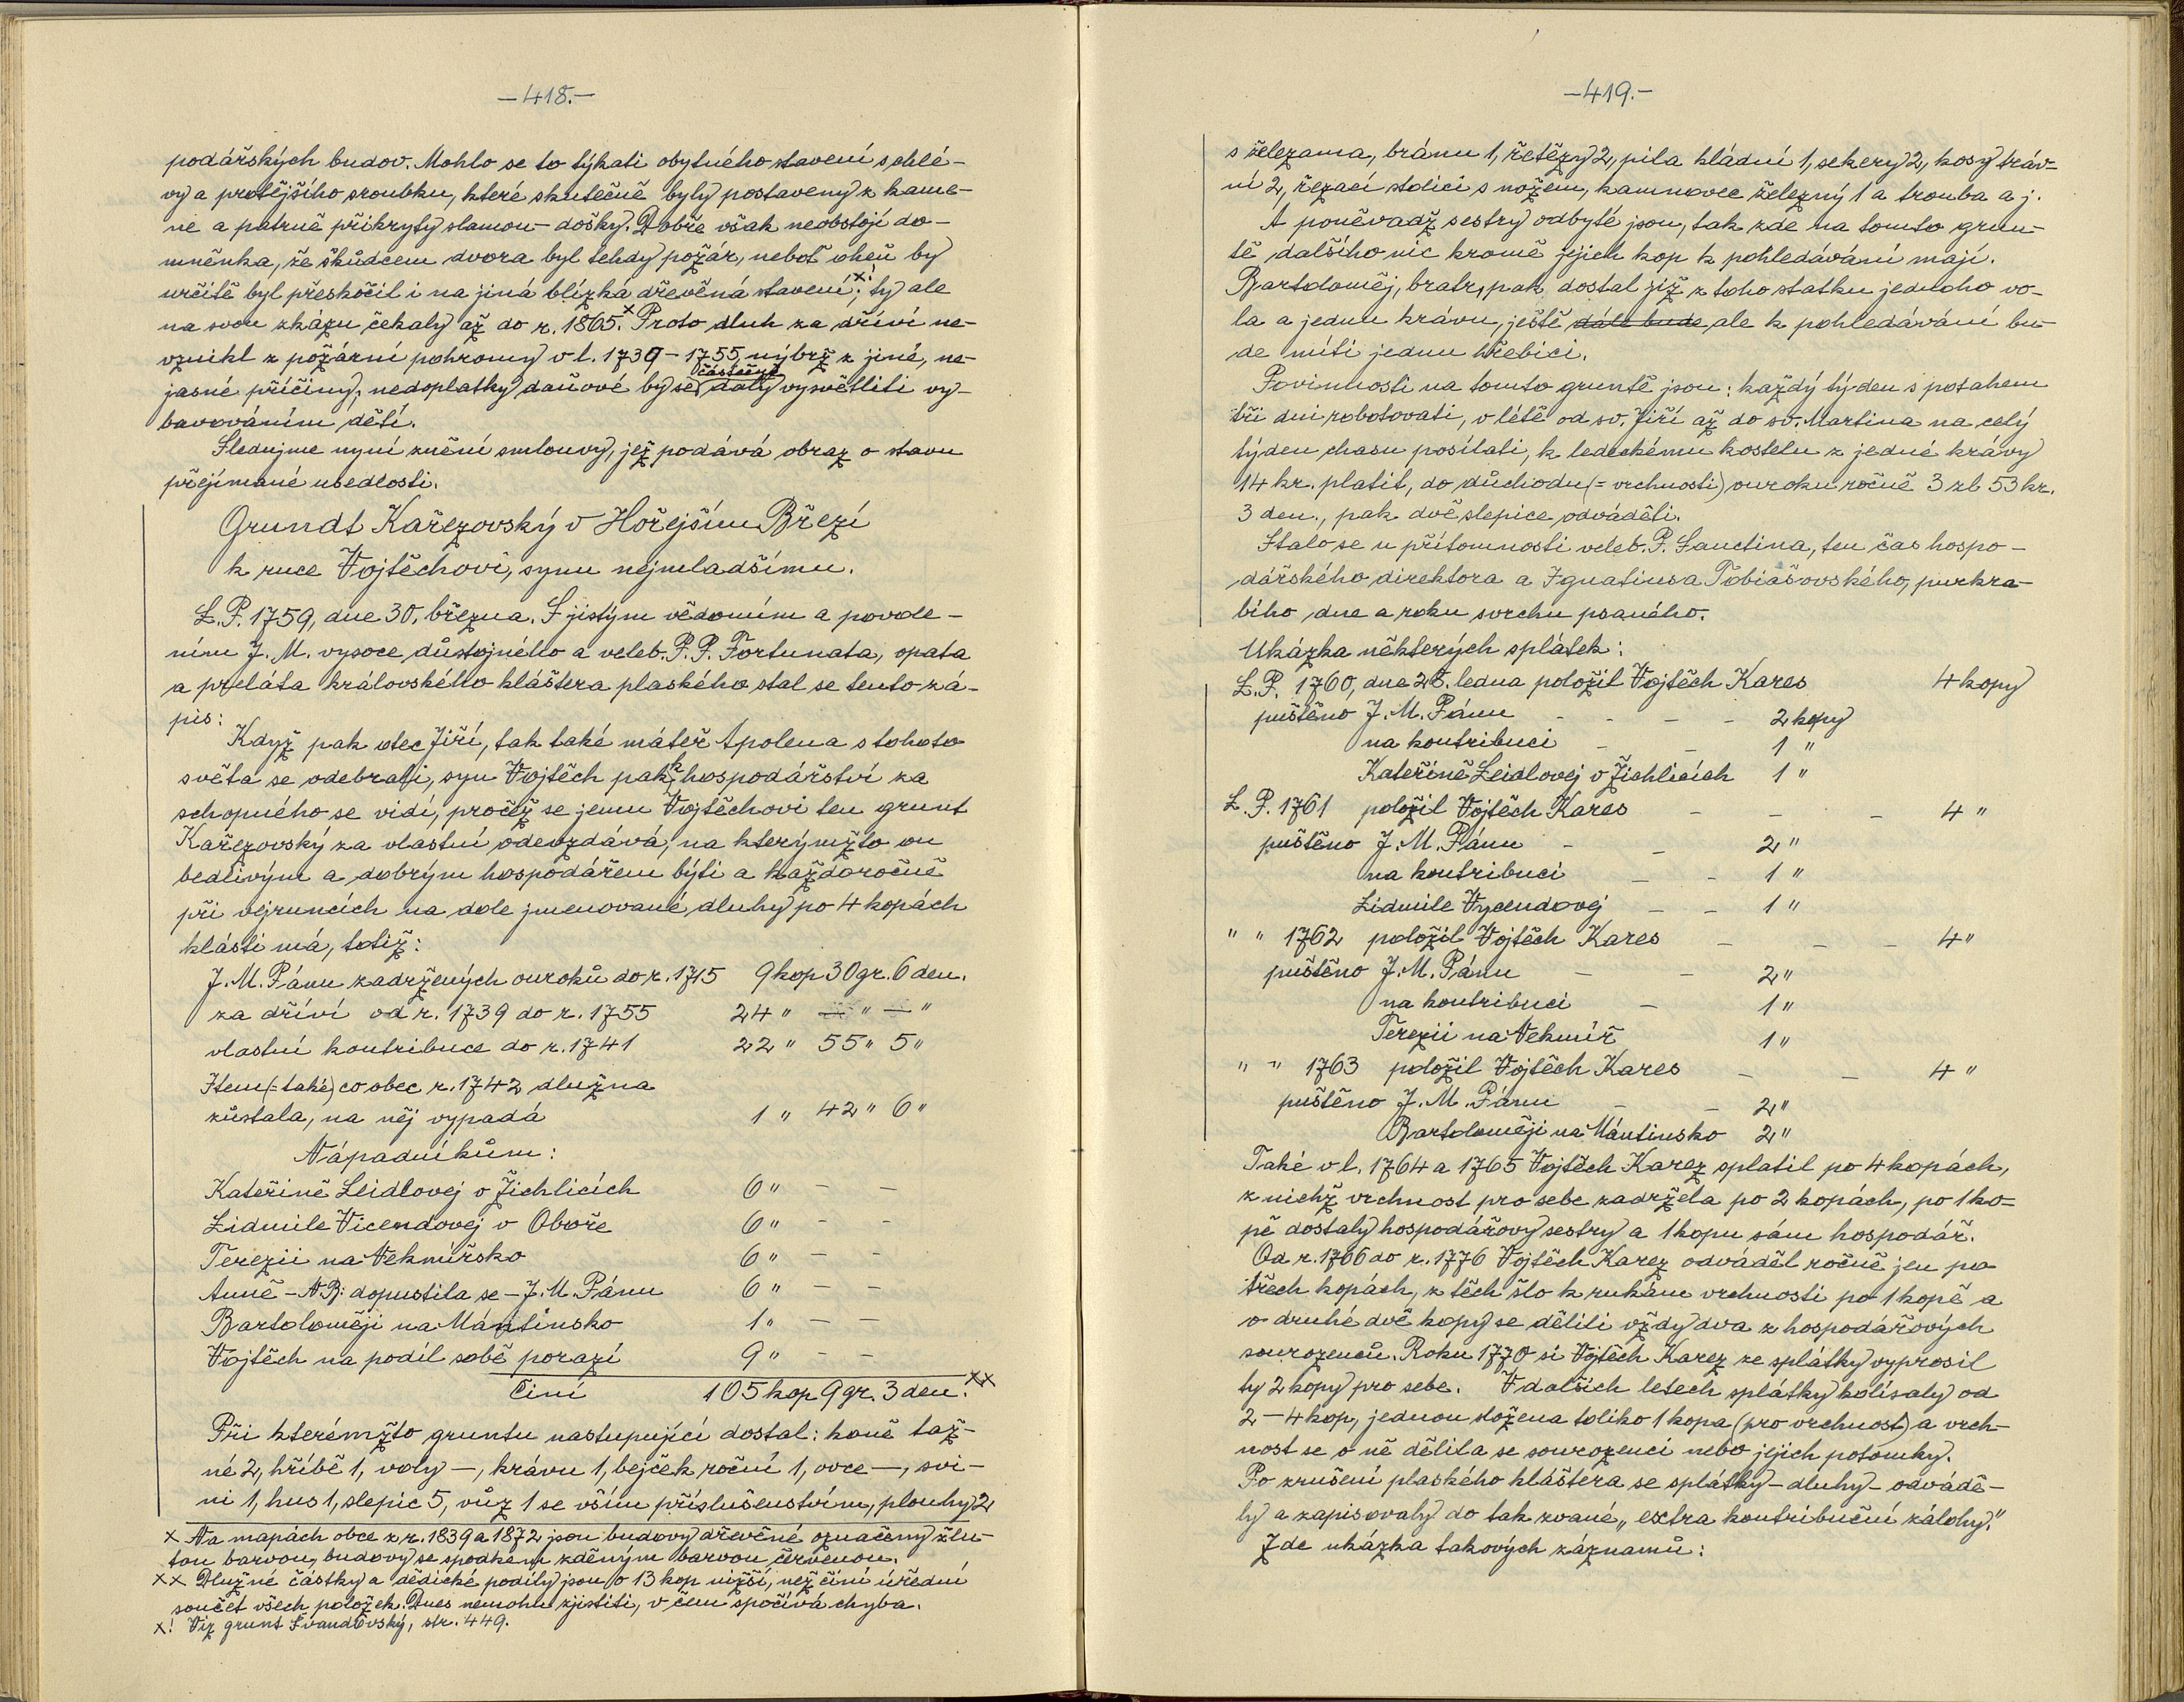 —418.—
podářských budov. Mohlo se to týkati obytného stavení s chlé-
vy a protějšího sroubku, které skutečně byly postaveny z kame-
ne a patrně přikryty slamou - došky. Dobře však neobstojí do-
mněnka, že škůdcem dvora byl tehdy požár, neboť oheň by
určitě byl přeskočil i na jiná blízká dřevěná stavení; x! ty ale
na svou zkázu čekaly až do r. 1865. x Proto dluh za dříví ne-
vznikl z požární pohromy v l. 1739 - 1755, nýbrž z jiné, ne-
jasné příčiny, nedoplatky daňové by se částečně daly vysvětliti vy-
bavováním dětí.
Sledujme nyní znění smlouvy, jež podává obraz o stavu
přejímané usedlosti.
Grundt Kařezovský v Hořejším Březí
k ruce Vojtěchovi, synu nejmladšímu.
L. P. 1759, dne 30. března. S jistým vědomím a povole-
ním J. M. vysoce důstojného a veleb. P. P. Fortunata, opata
a preláta královského kláštera plaského stal se tento zá-
pis:
Když pak otec Jiří, tak také máteř Apolena s tohoto
světa se odebrali, syn Vojtěch pak k hospodářství za
schopného se vidí, pročež se jemu Vojtěchovi ten grunt
Kařezovský za vlastní odevzdává, na kterýmžto on
bedlivým a dobrým hospodářem býti a každoročně
při vejruncích na dole jmenované dluhy po 4 kopách
klásti má, totiž:
J. M. Pánu zadržených ouroků do r. 1715 9 kop 30 gr. 6 den.
za dříví od r. 1739 do r. 1755 24 " — " — "
vlastní kontribuce do r. 1741 22 " 55 " 5 "
Item (= také) co obec r. 1742 dlužna
zůstala, na něj vypadá 1 " 42 " 6 "
Nápadníkům:
Kateřině Leidlovej v Žichlicích 6 " — —
Lidmile Vicendovej v Oboře 6 " — —
Terezii na Nekmířsko 6 " — —
Anně - NB: dopustila se - J. M. Pánu 6 " — —
Bartoloměji na Mantinsko 1 " — —
Vojtěch na podíl sobě porazí 9 " — —
Činí 105 kop 9 gr. 3 den. xx
Při kterémžto gruntu nastupující dostal: koně taž-
né 2, hříbě 1, voly —, krávu 1, bejček roční 1, ovce —, svi-
ni 1, hus 1, slepic 5, vůz 1 se vším příslušenstvím, pluhy 2
x Na mapách obce z r. 1839 a 1872 jsou budovy dřevěné označeny žlu-
tou barvou, budovy se spodkem zděným barvou červenou.
xx Dlužné částky a dědické podíly jsou o 13 kop nižší, než činí úřední
součet všech položek. Dnes nemohu zjistiti, v čem spočívá chyba.
x! Viz grunt Švandovský, str. 449.
—419.—
s železama, bránu 1, řetězy 2, pila kládní 1, sekery 2, kosy tráv-
ní 2, řezací stolici s nožem, kamnovec železný 1 a trouba a j.
A poněvadž sestry odbyté jsou, tak zde na tomto grun-
tě dalšího nic kromě jejich kop k pohledávání mají.
Bartoloměj, bratr, pak dostal již z toho statku jednoho vo-
la a jednu krávu, ještě dále bude ale k pohledávání bu-
de míti jednu hřebici.
Povinnosti na tomto gruntě jsou: každý týden s potahem
tři dni robotovati, v létě od sv. Jiří až do sv. Martina na celý
týden chasu posílati, k ledeckému kostelu z jedné krávy
14 kr. platit, do důchodu (= vrchnosti) ouroku ročně 3 zl 53 kr.
3 den., pak dvě slepice odváděti.
Stalo se u přítomnosti veleb. P. Sanctina, ten čas hospo-
dářského direktora a Ignatiusa Tobiášovského, purkra-
bího dne a roku svrchu psaného.
Ukázka některých splátek:
L. P. 1760, dne 28. ledna položil Vojtěch Kares 4 kopy
puštěno J. M. Pánu - - - - 2 kopy
na kontribuci - - 1 "
Kateřině Leidlovej v Žichlicích 1 "
L. P. 1761 položil Vojtěch Kares - - - 4 "
puštěno J. M. Pánu - - 2 "
na kontribuci - - 1 "
Lidmile Vycendovej - - 1 "
" " 1762 položil Vojtěch Kares - - - 4 "
puštěno J. M. Pánu - - 2 "
na kontribuci - 1 "
Terezii na Nekmíř 1 "
" " 1763 položil Vojtěch Kares - - 4 "
puštěno J. M. Pánu - - 2 "
Bartoloměji na Mántinsko 2 "
Také v l. 1764 a 1765 Vojtěch Karez splatil po 4 kopách,
z nichž vrchnost pro sebe zadržela po 2 kopách, po 1 ko-
pě dostaly hospodářovy sestry a 1 kopu sám hospodář.
Od r. 1766 do r. 1776 Vojtěch Karez odváděl ročně jen po
třech kopách, z těch šlo k rukám vrchnosti po 1 kopě a
o druhé dvě kopy se dělili vždy dva z hospodářových
sourozenců. Roku 1770 si Vojtěch Karez ze splátky vyprosil
ty 2 kopy pro sebe. V dalších letech splátky kolísaly od
2 - 4 kop, jednou složena toliko 1 kopa (pro vrchnost) a vrch-
nost se o ně dělila se sourozenci nebo jejich potomky.
Po zrušení plaského kláštera se splátky - dluhy - odvádě-
ly a zapisovaly do tak zvané „extra kontribuční zálohy."
Zde ukázka takových záznamů: